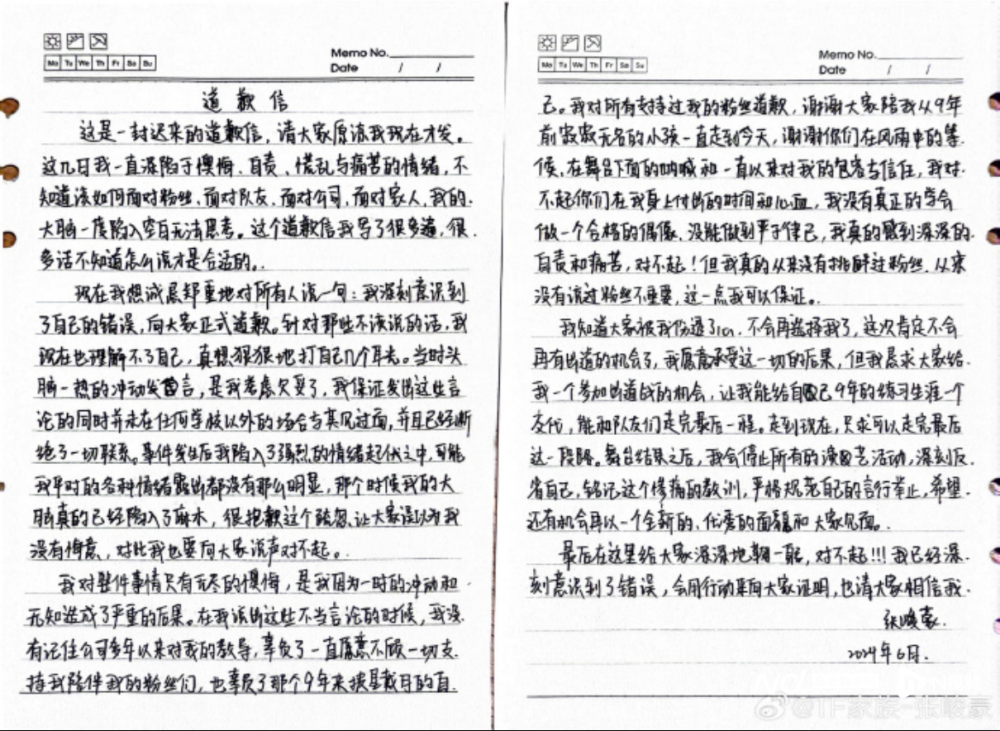 Memo No.
Date / /
Mo Tu We Th Fr Sa Su
道歉信
这是一封迟来的道歉信，请大家原谅我现在才发。
这几日我一直深陷于懊悔、自责、慌乱与痛苦的情绪，不
知道该如何面对粉丝、面对队友、面对公司，面对家人，我的
大脑一度陷入空白无法思考。这个道歉信我写了很多遍，很
多话不知道怎么说才是合适的。
现在我想诚恳郑重地对所有人说一句：我深刻意识到
了自己的错误，向大家正式道歉。针对那些不该说的话，我
现在也理解不了自己，真想狠狠地打自己几个耳光。当时头
脑一热的冲动发言，是我考虑欠妥了，我保证发出这些言
论的同时并未在任何学校以外的场合与其见过面，并且已经断
绝了一切联系。事件发生后我陷入了强烈的情绪起伏之中，可能
我平时的各种情绪露出都没有那么明显，那个时候我的大
脑真的已经陷入了麻木，很抱歉这个疏忽让大家误以为我
没有悔意，对此我也要向大家说声对不起。
我对整件事情只有无尽的懊悔，是我因为一时的冲动和
无知造成了严重的后果。在我说出这些不当言论的时候，我没
有记住公司多年以来对我的教导，辜负了一直愿意不顾一切支
持我陪伴我的粉丝们，也辜负了那个9年来披星戴月的自
Memo No.
Date / /
Mo Tu We Th Fr Sa Su
己。我对所有支持过我的粉丝道歉，谢谢大家陪我从9年
前寂寂无名的小孩一直走到今天，谢谢你们在风雨中的等
候，在舞台下面的呐喊和一直以来对我的包容与信任，我对
不起你们在我身上付出的时间和心血，我没有真正的学会
做一个合格的偶像、没能做到严于律己，我真的感到深深的
自责和痛苦，对不起！但我真的从来没有挑衅过粉丝、从来
没有说过粉丝不重要，这一点我可以保证。
我知道大家被我伤透了心，不会再选择我了，这次肯定不会
再有出道的机会了，我愿意承受这一切的后果，但我恳求大家给
我一个参加出道战的机会，让我能给自己9年的练习生涯一个
交代，能和队友们走完最后一程。走到现在，只求可以走完最后
这一段路。舞台结束之后，我会停止所有的演艺活动，深刻反
省自己，铭记这个惨痛的教训，严格规范自己的言行举止，希望
还有机会再以一个全新的、优秀的面貌和大家见面。
最后在这里给大家深深地鞠一躬，对不起！！！我已经深
刻意识到了错误，会用行动来向大家证明，也请大家相信我。
张峻豪
2024年6月.
@TF家族-张峻豪